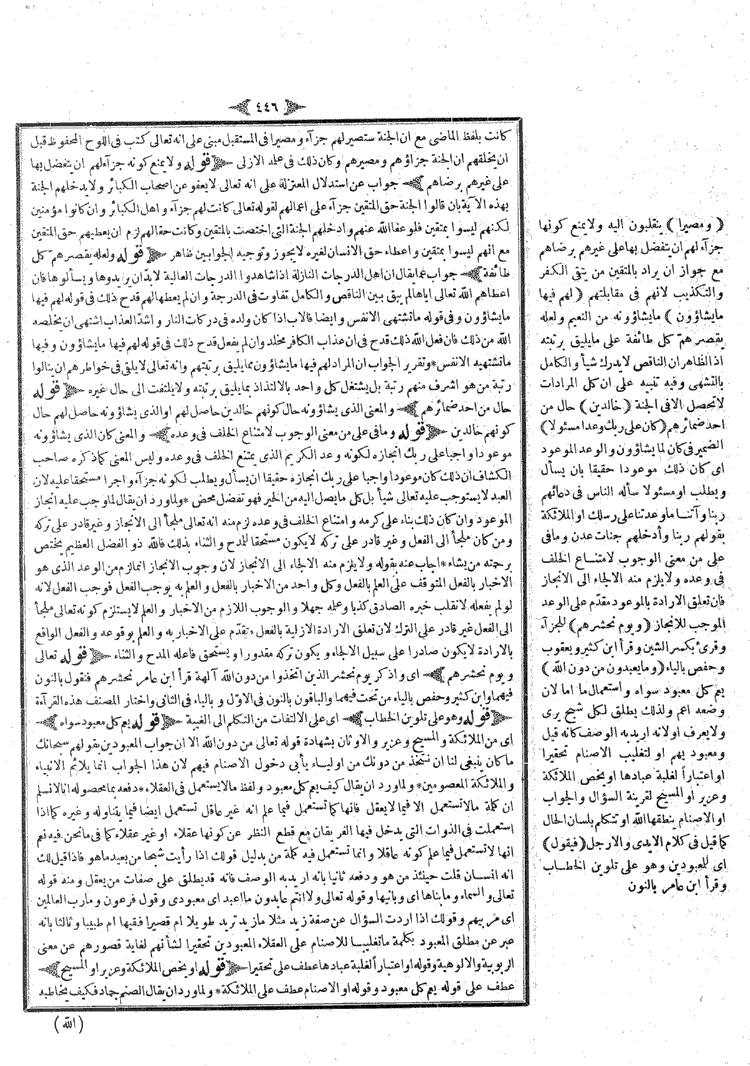 ﴿ ٤٤٦ ﴾
كانت بلفظ الماضى مع ان الجنة ستصير لهم جزآء ومصيرا فى المستقبل مبنى على انه تعالى كتب فى اللوح المحفوظ قبل
ان يخلقهم ان الجنة جزاؤهم ومصيرهم وكان ذلك فى علمه الازلى ﴿ قوله ولا يمنع كونه جزآء لهم ان يتفضل بها
على غيرهم برضاهم ﴾ جواب عن استدلال المعتزلة على انه تعالى لا يعفو عن اصحاب الكبائر ولا يدخلهم الجنة
بهذه الآية بان قالوا الجنة حق المتقين جزآء على اعمالهم لقوله تعالى كانت لهم جزآء واهل الكبائر وان كانوا مؤمنين
لكنهم ليسوا بمتقين فلو عفا الله عنهم وادخلهم الجنة التى اختصت بالمتقين وكانت حقالهم لزم ان يعطيهم حق المتقين
مع انهم ليسوا بمتقين واعطاء حق الانسان لغيره لايجوز وتوجيه الجوابين ظاهر ﴿ قوله ولعله يقصر هم كل
طائفة ﴾ جواب عما يقال ان اهل الدرجات النازلة اذا شاهدوا الدرجات العالية لابدّ ان يريدوها ويسألوها فان
اعطاهم الله تعالى اياها لم يبق بين الناقص والكامل تفاوت فى الدرجة وان لم يعطها لهم قدح ذلك فى قوله لهم فيها
مايشاؤون وفى قوله ماتشتهى الانفس وايضا فالاب اذا كان ولده فى دركات النار واشدّ العذاب اشتهى ان يخلصه
الله من ذلك فان فعل الله ذلك قدح فى ان عذاب الكافر مخلد وان لم يفعل قدح ذلك فى قوله لهم فيها مايشاؤون وفيها
ماتشتهيه الانفس * وتقرير الجواب ان المراد لهم فيها مايشاؤون مما يليق برتبتهم وانه تعالى لايلقى فى خواطرهم ان ينالوا
رتبة من هو اشرف منهم رتبة بل يشتغل كل واحد بالالتذاذ بما يليق برتبته ولا يلتفت الى حال غيره ﴿ قوله
حال من احد ضمائرهم ﴾ والمعنى الذى يشاؤنه حال كونهم خالدين حاصل لهم او الذى يشاؤنه حاصل لهم حال
كونهم خالدين ﴿ قوله ومافى على من معنى الوجوب لامتناع الخلف فى وعده ﴾ والمعنى كان الذى يشاؤونه
موعودا واجبا على ربك انجازه لكونه وعد الكريم الذى يمتنع الخلف فى وعده وليس المعنى كما ذكره صاحب
الكشاف ان ذلك كان موعودا واجبا على ربك انجازه حقيقا ان يسأل ويطلب لكونه جزآء واجرا مستحقا عليه لان
العبد لايستوجب عليه تعالى شيأ بل كل مايصل اليه من الخير فهو تفضل محض * ولما ورد ان يقال لما وجب عليه انجاز
الموعود وان كان ذلك بناء على كرمه وامتناع الخلف فى وعده لزم منه انه تعالى ملجأ الى الانجاز وغير قادر على تركه
ومن كان ملجأ الى الفعل وغير قادر على تركه لايكون مستحقا للمدح والثناء بذلك فالله ذو الفضل العظيم يختص
برحمته من يشاء * اجاب عنه بقوله ولا يلزم منه الالجاء الى الانجاز لان وجوب الانجاز انما لزم من الوعد الذى هو
الاخبار بالفعل المتوقف على العلم بالفعل وكل واحد من الاخبار بالفعل والعلم به يوجب الفعل فوجب الفعل لانه
لو لم يفعله لانقلب خبره الصادق كذبا وعلمه جهلا والوجوب اللازم من الاخبار والعلم لا يستلزم كونه تعالى ملجأ
الى الفعل غير قادر على الترك لان تعلق الارادة الازلية بالفعل متقدّم على الاخبار به والعلم بوقوعه والفعل الواقع
بالارادة لايكون صادرا على سبيل الالجاء ويكون تركه مقدورا ويستحق فاعله المدح والثناء ﴿ قوله تعالى
ويوم نحشرهم ﴾ اى واذكر يوم نحشر الذين اتخذوا من دون الله آلهة قرأ ابن عامر نحشرهم فنقول بالنون
فيهما وابن كثير وحفص بالياء من تحت فيهما والباقون بالنون فى الاوّل وبالياء فى الثانى واختار المصنف هذه القرآءة
﴿ قوله وهو على تلوين الخطاب ﴾ اى على الالتفات من التكلم الى الغيبة ﴿ قوله يعم كل معبود سواه ﴾
اى من الملائكة والمسيح وعزير والاوثان بشهادة قوله تعالى من دون الله الا ان جواب المعبودين بقولهم سبحانك
ماكان ينبغى لنا ان نتخذ من دونك من اولياء يأبى دخول الاصنام فيهم لان هذا الجواب انما يلائم الانبياء
والملائكة المعصومين * ولما ورد ان يقال كيف يعم كل معبود ولفظ ما لايستعمل فى العقلاء * دفعه بما محصوله انا لانسلم
ان كلمة مالاتستعمل الا فيما لا يعقل فانها كما تستعمل فيما علم انه غير عاقل تستعمل ايضا فيما يتناوله وغيره كما اذا
استعملت فى الذوات التى يدخل فيها الفريقان مع قطع النظر عن كونها عقلاء او غير عقلاء كما فى مانحن فيه نعم
انها لاتستعمل فيما علم كونه عاقلا وانما تستعمل فيه كلمة من بدليل قولك اذا رأيت شبحا من بعيد ماهو فاذا قيل لك
انه انسان قلت حينئذ من هو ودفعه ثانيا بانه اريد به الوصف فانه قد يطلق على صفات من يعقل ومنه قوله
تعالى والسماء ومابناها اى وبانيها وقوله تعالى ولا انتم عابدون ما اعبد اى معبودى وقول فرعون ومارب العالمين
اى مربيهم وقولك اذا اردت السؤال عن صفة زيد مثلا مازيد تريد طويلا ام قصيرا فقيها ام طبيبا وثالثا بانه
عبر عن مطلق المعبود بكلمة ماتغليبا للاصنام على العقلاء المعبودين تحقيرا لشأنهم لغاية قصورهم عن معنى
الربوبية والالوهية وقوله او اعتبارا لغلبة عبادها عطف على تحقيرا ﴿ قوله او يخص الملائكة وعزير او المسيح ﴾
عطف على قوله يعم كل معبود وقوله او الاصنام عطف على الملائكة * ولما ورد ان يقال الصنم جماد فكيف يخاطبه
( الله )
( ومصيرا ) ينقلبون اليه ولا يمنع كونها
جزآء لهم ان يتفضل بها على غيرهم برضاهم
مع جواز ان يراد بالمتقين من يتقى الكفر
والتكذيب لانهم فى مقابلتهم ( لهم فيها
مايشاؤون ) مايشاؤونه من النعيم ولعله
يقصر هم كل طائفة على مايليق برتبته
اذ الظاهر ان الناقص لايدرك شيأ والكامل
بالتشهى وفيه تنبيه على ان كل المرادات
لاتحصل الا فى الجنة ( خالدين ) حال من
احد ضمائرهم ( كان على ربك وعدا مسئولا )
الضمير فى كان لما يشاؤون والوعد الموعود
اى كان ذلك موعودا حقيقا بان يسأل
ويطلب او مسئولا سأله الناس فى دعائهم
ربنا وآتنا ماوعدتنا على رسلك او الملائكة
بقولهم ربنا وأدخلهم جنات عدن ومافى
على من معنى الوجوب لامتناع الخلف
فى وعده ولا يلزم منه الالجاء الى الانجاز
فان تعلق الارادة بالموعود مقدّم على الوعد
الموجب للانجاز ( ويوم نحشرهم ) للجزآء
وقرئ بكسر الشين وقرأ ابن كثير ويعقوب
وحفص بالياء ( ومايعبدون من دون الله )
يعم كل معبود سواه واستعمال ما اما لان
وضعه اعم ولذلك يطلق لكل شبح يرى
ولا يعرف او لانه اريد به الوصف كانه قيل
ومعبود بهم او لتغليب الاصنام تحقيرا
او اعتبارا لغلبة عبادها او يخص الملائكة
وعزير او المسيح لقرينة السؤال والجواب
او الاصنام ينطقها الله او تتكلم بلسان الحال
كما قيل فى كلام الايدى والارجل ( فيقول )
اى للمعبودين وهو على تلوين الخطاب
وقرأ ابن عامر بالنون